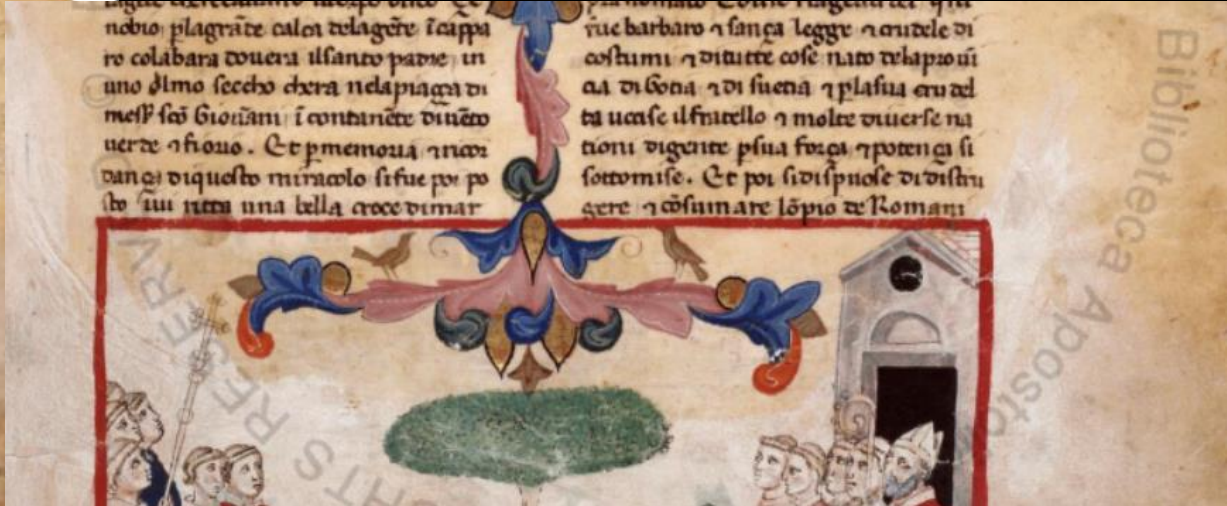 nobio p lagrāte calca delagēte ī cappa
ro colabara douera ilsanto padre in
uno olmo seccho chera nelapiaçça di
mess scō Giouāni ī contanēte diuēto
uerde ⁊ fiorio. Et p memoria ⁊ ricor
dança diquesto miracolo sifue poi po
sto iui ritta una bella croce dimar
fue barbaro ⁊ sança legge ⁊ crudele di
costumi ⁊ ditutte cose nato delaproui
cia di Gotia ⁊ di suetia ⁊ p lasua crudel
ta uccise ilfratello ⁊ molte diuerse na
tioni digente p sua força ⁊ potença si
sottomise. Et poi sidispuose di distru
gere ⁊ cōsumare lōpio de Romani
Biblioteca Aposto
HTS RESERV
©